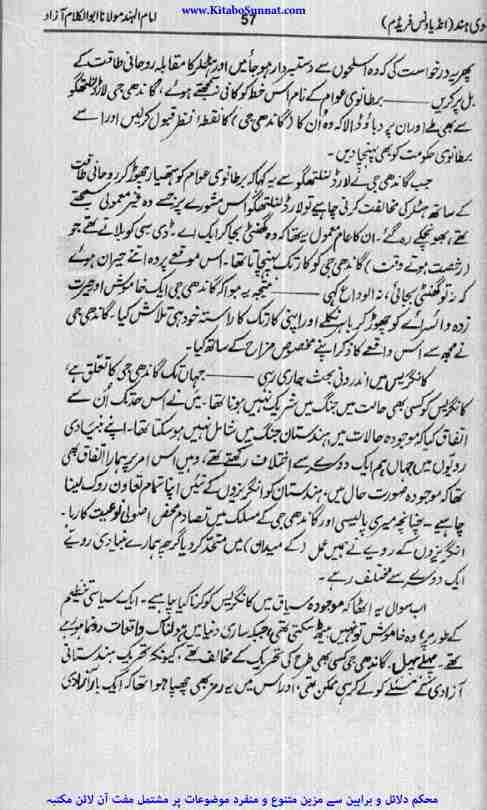 www.KitaboSunnat.com
دی ہند (انڈیا ونس فریڈم) 57 امام الہند مولانا ابوالکلام آزاد
پھر یہ درخواست کی کہ وہ اسلحوں سے دستبردار ہو جائیں اور ہٹلر کا مقابلہ روحانی طاقت کے
بل پر کریں ——— برطانوی عوام کے نام اس خط کو کافی نہ سمجھتے ہوئے، گاندھی جی لارڈ لنلتھگو
سے بھی ملے اور ان پر دباؤ ڈالا کہ وہ اُن کا (گاندھی جی) کا نقطۂ نظر قبول کر لیں اور اسے
برطانوی حکومت کو بھی پہنچا دیں۔
جب گاندھی جی نے لارڈ لنلتھگو سے یہ کہا کہ برطانوی عوام کو ہتھیار چھوڑ کر روحانی طاقت
کے ساتھ ہٹلر کی مخالفت کرنی چاہیے تو لارڈ لنلتھگو اس مشورے پر جسے وہ غیر معمولی سمجھتے
تھے، بھونچکے رہ گئے۔ ان کا عام معمول یہ تھا کہ وہ گھنٹی بجا کر ایک اے۔ ڈی سی کو بلاتے تھے جو
(رخصت ہوتے وقت) گاندھی جی کو کار تک پہنچاتا تھا۔ اس موقعے پر وہ اتنے حیران ہوئے
کہ نہ تو گھنٹی بجائی، نہ الوداع کہی ——— نتیجہ یہ ہوا کہ گاندھی جی ایک خاموش اور حیرت
زدہ وائسرائے کو چھوڑ کر باہر نکلے اور اپنی کار تک کا راستہ خود ہی تلاش کیا۔ گاندھی جی
نے مجھ سے اس واقعے کا ذکر اپنے مخصوص مزاح کے ساتھ کیا۔
کانگریس میں اندرونی بحث جاری رہی ——— جہاں تک گاندھی جی کا تعلق ہے،
کانگریس کو کسی بھی حالت میں جنگ میں شریک نہیں ہونا تھا۔ میں نے اس حد تک اُن سے
اتفاق کیا کہ موجودہ حالات میں ہندستان جنگ میں شامل نہیں ہو سکتا تھا۔ اپنے بنیادی
رویوں میں جہاں ہم ایک دوسرے سے اختلاف رکھتے تھے، وہیں اس امر پر ہمارا اتفاق بھی
تھا کہ موجودہ صورت حال میں، ہندستان کو انگریزوں کے تئیں اپنا تمام تعاون روک لینا
چاہیے۔ چنانچہ میری پالیسی اور گاندھی جی کے مسلک میں تصادم محض اصولی نوعیت کا رہا۔
انگریزوں کے رویے نے ہمیں عمل (کے میدان) میں متحد کر دیا گرچہ ہمارے بنیادی رویے
ایک دوسرے سے مختلف رہے۔
اب سوال یہ اٹھا کہ موجودہ سیاق میں کانگریس کو کرنا کیا چاہیے۔ ایک سیاسی تنظیم
کے طور پر وہ خاموش تو نہیں بیٹھ سکتی تھی جبکہ ساری دنیا میں ہولناک واقعات رونما ہو رہے
تھے۔ پہلے پہل، گاندھی جی کسی بھی طرح کی تحریک کے مخالف تھے، کیونکہ تحریک ہندستانی
آزادی کے مسئلے کو لے کر ہی ممکن تھی، اور اس میں یہ رمز بھی چھپا ہوا تھا کہ ایک بار آزادی
محکم دلائل و براہین سے مزین متنوع و منفرد موضوعات پر مشتمل مفت آن لائن مکتبہ